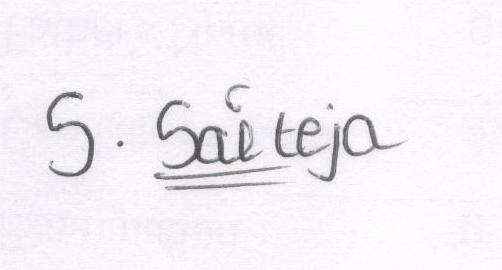 S. Saiteja